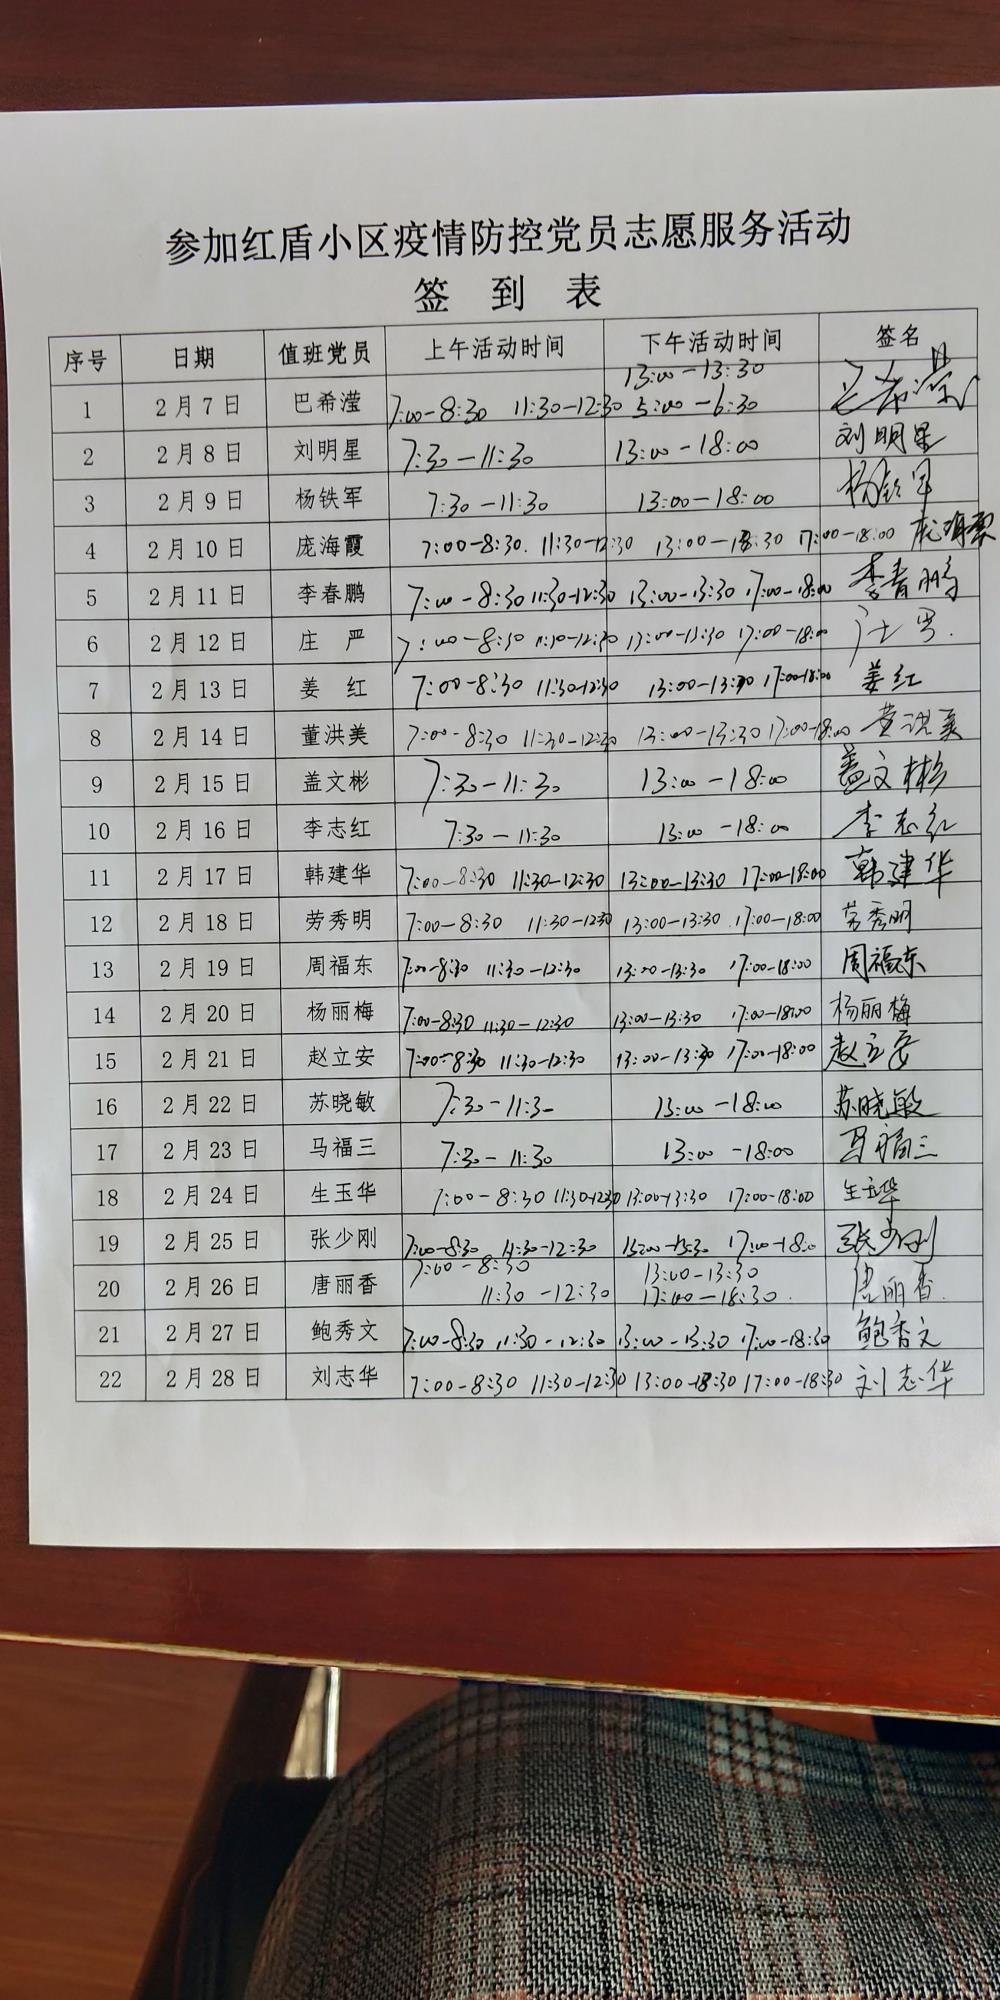 参加红盾小区疫情防控党员志愿服务活动
签 到 表
序号 日期 值班党员 上午活动时间 下午活动时间 签名
1 2月7日 巴希滢 7:00-8:30 11:30-12:30 13:00-13:30 5:00-6:30
2 2月8日 刘明星 7:30-11:30 13:00-18:00 刘明星
3 2月9日 杨铁军 7:30-11:30 13:00-18:00 杨铁军
4 2月10日 庞海霞 7:00-8:30 11:30-12:30 13:00-13:30 17:00-18:00 庞海霞
5 2月11日 李春鹏 7:00-8:30 11:30-12:30 13:00-13:30 17:00-18:00 李春鹏
6 2月12日 庄 严 7:00-8:30 11:30-12:30 13:00-13:30 17:00-18:00
7 2月13日 姜 红 7:00-8:30 11:30-12:30 13:00-13:30 17:00-18:00 姜红
8 2月14日 董洪美 7:00-8:30 11:30-12:30 13:00-13:30 17:00-18:00 董洪美
9 2月15日 盖文彬 7:30-11:30 13:00-18:00 盖文彬
10 2月16日 李志红 7:30-11:30 13:00-18:00 李志红
11 2月17日 韩建华 7:00-8:30 11:30-12:30 13:00-13:30 17:00-18:00 韩建华
12 2月18日 劳秀明 7:00-8:30 11:30-12:30 13:00-13:30 17:00-18:00 劳秀明
13 2月19日 周福东 7:00-8:30 11:30-12:30 13:00-13:30 17:00-18:00 周福东
14 2月20日 杨丽梅 7:00-8:30 11:30-12:30 13:00-13:30 17:00-18:00 杨丽梅
15 2月21日 赵立安 7:00-8:30 11:30-12:30 13:00-13:30 17:00-18:00 赵立安
16 2月22日 苏晓敏 7:30-11:30 13:00-18:00 苏晓敏
17 2月23日 马福三 7:30-11:30 13:00-18:00 马福三
18 2月24日 生玉华 7:00-8:30 11:30-12:30 13:00-13:30 17:00-18:00 生玉华
19 2月25日 张少刚 7:00-8:30 11:30-12:30 15:00-15:30 17:00-18:00 张少刚
20 2月26日 唐丽香 7:00-8:30 11:30-12:30 13:00-13:30 17:00-18:30. 唐丽香.
21 2月27日 鲍秀文 7:00-8:30 11:30-12:30 13:00-13:30 17:00-18:30 鲍秀文
22 2月28日 刘志华 7:00-8:30 11:30-12:30 13:00-18:30 17:00-18:30 刘志华